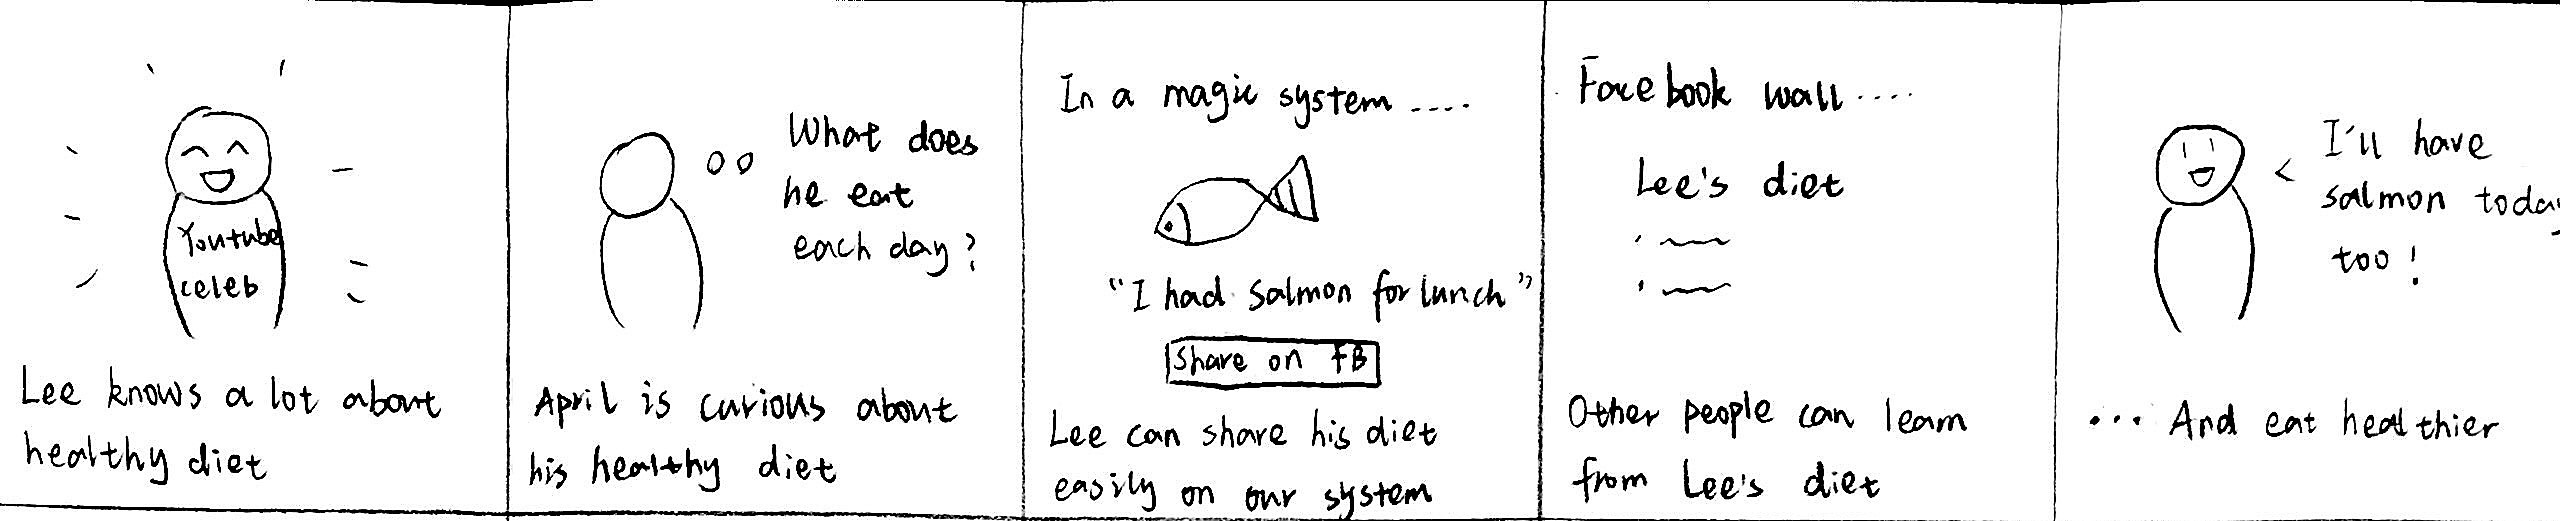 Youtube
celeb
Lee knows a lot about
healthy diet
What does
he eat
each day?
April is curious about
his healthy diet
In a magic system ....
"I had salmon for lunch"
Share on FB
Lee can share his diet
easily on our system
Facebook wall ....
Lee's diet
Other people can learn
from Lee's diet
I'll have
salmon today
too!
... And eat healthier